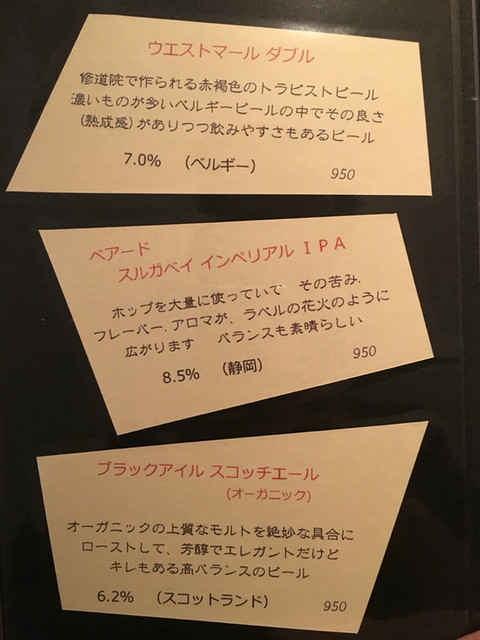 ウエストマール ダブル
修道院で作られる赤褐色のトラピストビール
濃いものが多いベルギービールの中でその良さ
(熟成感)がありつつ飲みやすさもあるビール
7.0% (ベルギー) 950
ベアード
スルガベイ インペリアル IPA
ホップを大量に使っていて その苦み,
フレーバー,アロマが、ラベルの花火のように
広がります バランスも素晴らしい
8.5% (静岡) 950
ブラックアイル スコッチエール
(オーガニック)
オーガニックの上質なモルトを絶妙な具合に
ローストして、芳醇でエレガントだけど
キレもある高バランスのビール
6.2% (スコットランド) 950